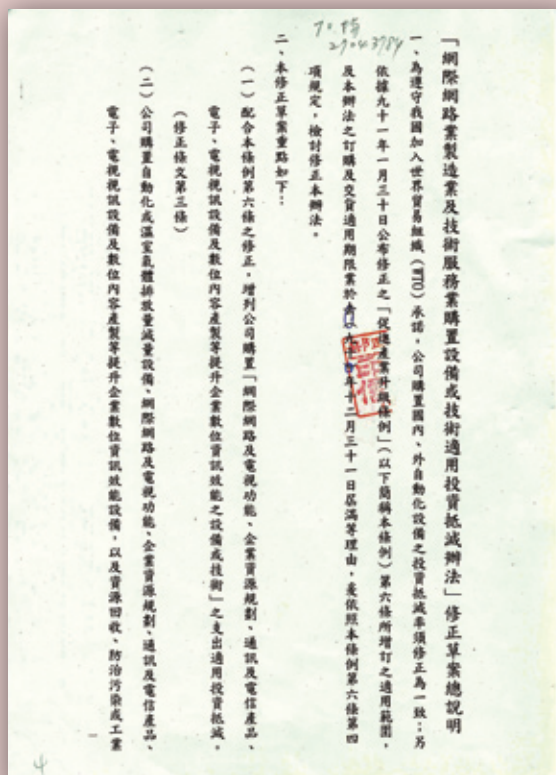 70.倩
27043784
「網際網路業製造業及技術服務業購置設備或技術適用投資抵減辦法」修正草案總說明
一、為遵守我國加入世界貿易組織(WTO)承諾,公司購置國內、外自動化設備之投資抵減率須修正為一致;另
依據九十一年一月三十日公布修正之「促進產業升級條例」(以下簡稱本條例)第六條所增訂之適用範圍,
及本辦法之訂購及交貨適用期限業於 年十二月三十一日屆滿等理由,爰依照本條例第六條第四
項規定,檢討修正本辦法。
二、本修正草案重點如下:
(一)配合本條例第六條之修正,增列公司購置「網際網路及電視功能、企業資源規劃、通訊及電信產品、
電子、電視視訊設備及數位內容產製等提升企業數位資訊效能之設備或技術」之支出適用投資抵減。
(修正條文第三條)
(二)公司購置自動化或溫室氣體排放量減量設備、網際網路及電視功能、企業資源規劃、通訊及電信產品、
電子、電視視訊設備及數位內容產製等提升企業數位資訊效能設備,以及資源回收、防治污染或工業
4